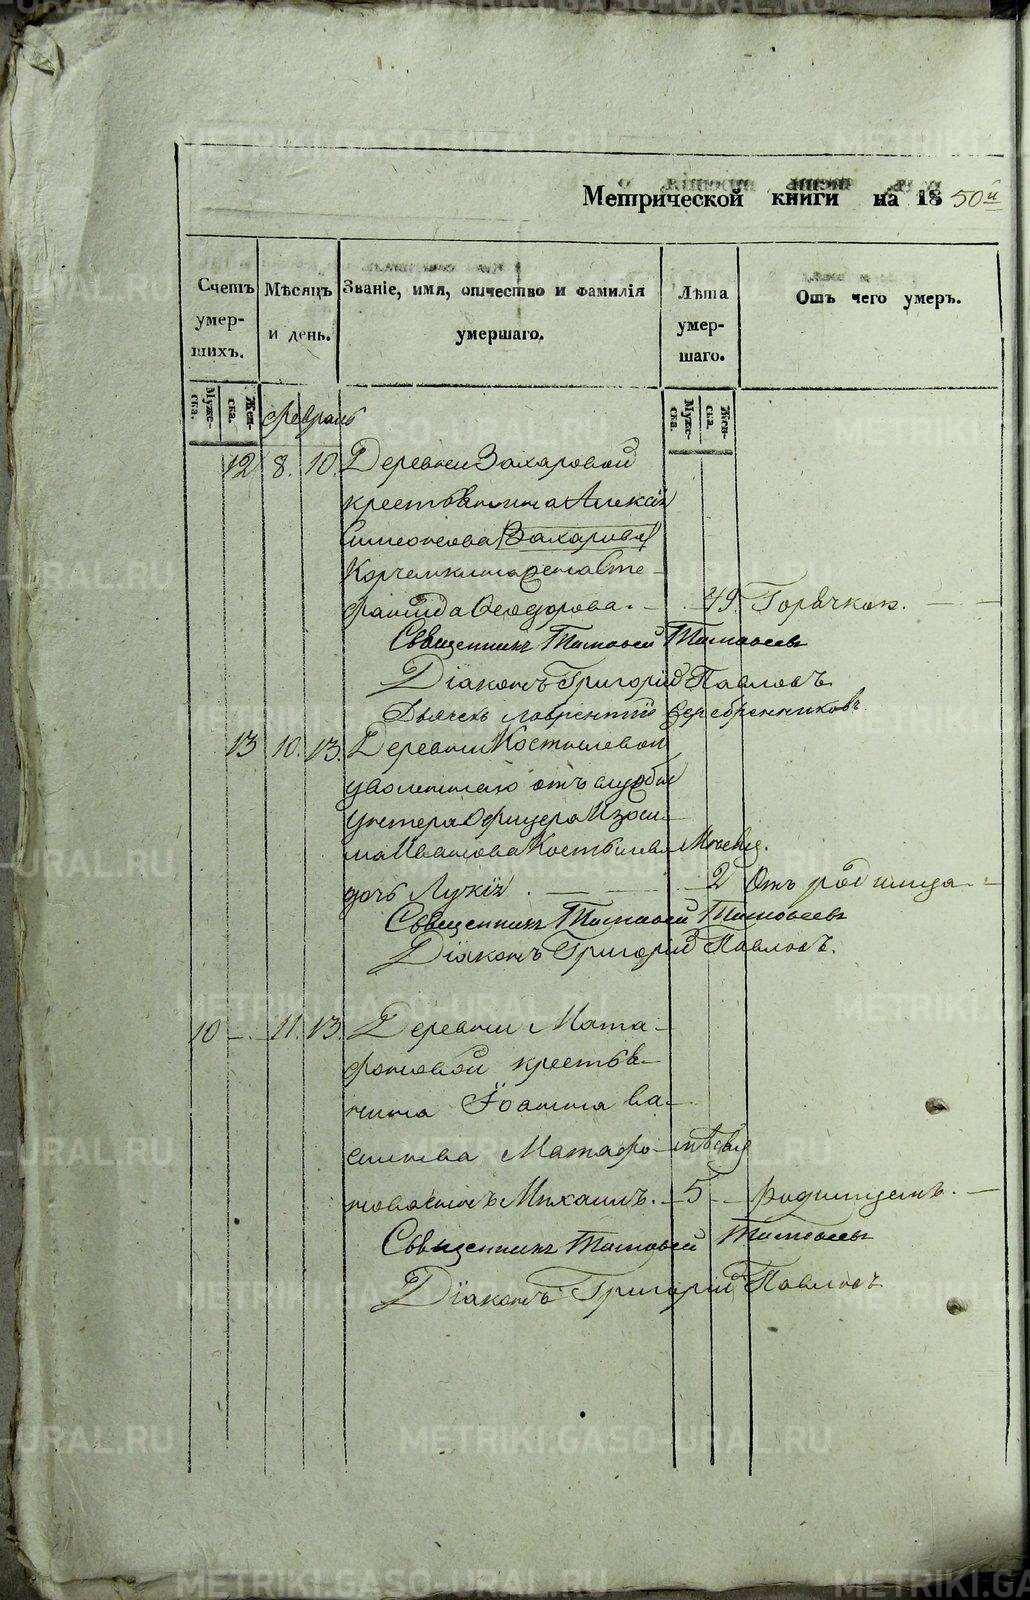 Метрической книги на 1850й
Счетъ умершихъ.
Мѣсяцъ и день.
Званіе, имя, отчество и фамилія умершаго.
Лѣта умершаго.
Отъ чего умеръ.
Мужеска.
Женска.
Мужеска.
Женска.
Февраль
12 8. 10. Деревни Захаровой
крестьянина Алексія
Симеонова Захарова
Корчемкина жена Сте-
фанида Феодорова. 49 Горячкою.
Священникъ Тимофей Тимофеевъ
Діаконъ Григорій Павловъ
Дьячекъ Лаврентій Серебренниковъ
13 10. 13. Деревни Костылевой
уволеннаго отъ службы
унтера Офицера Изоси-
ма Иванова Костылева Мѣсяц.
дочь Лукія. 2 Отъ родимца
Священникъ Тимофей Тимофеевъ
Діаконъ Григорій Павловъ.
10 11. 13. Деревни Мата-
фоновой крестья-
нина Іоанна Ва-
сильева Матафо- мѣсяц
нова сынъ Михаилъ. 5 родимцемъ.
Священникъ Тимофей Тимофеевъ
Діаконъ Григорій Павловъ
METRIKI.GASO-URAL.RU